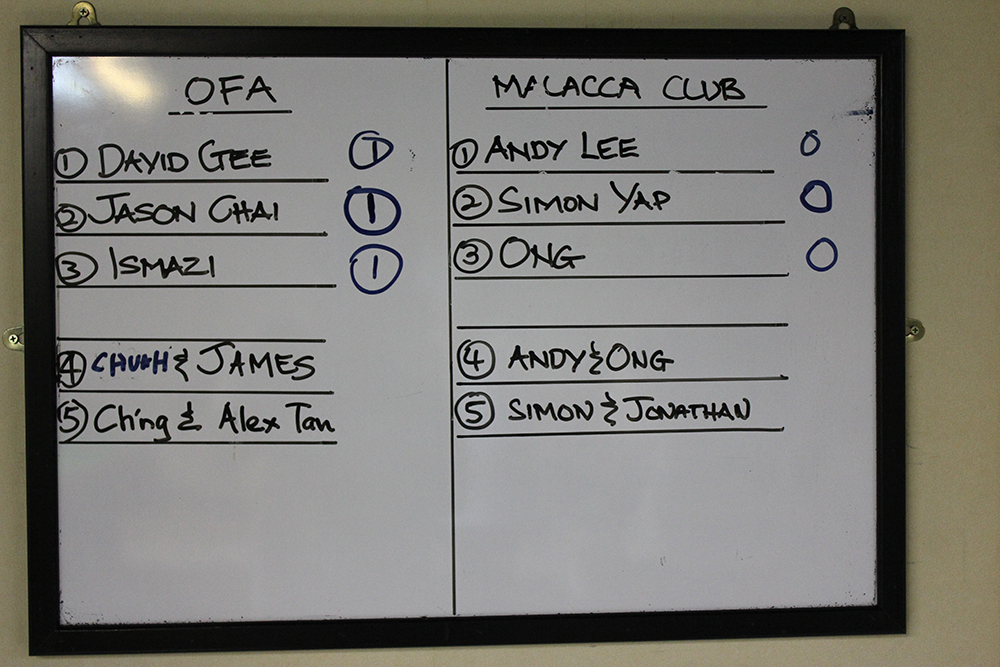 OFA
① DAVID GEE ①
② JASON CHAI ①
③ ISMAZI ①
④ CHUAH & JAMES
⑤ Ching & Alex Tan
MALACCA CLUB
① ANDY LEE 0
② SIMON YAP 0
③ ONG 0
④ ANDY & ONG
⑤ SIMON & JONATHAN